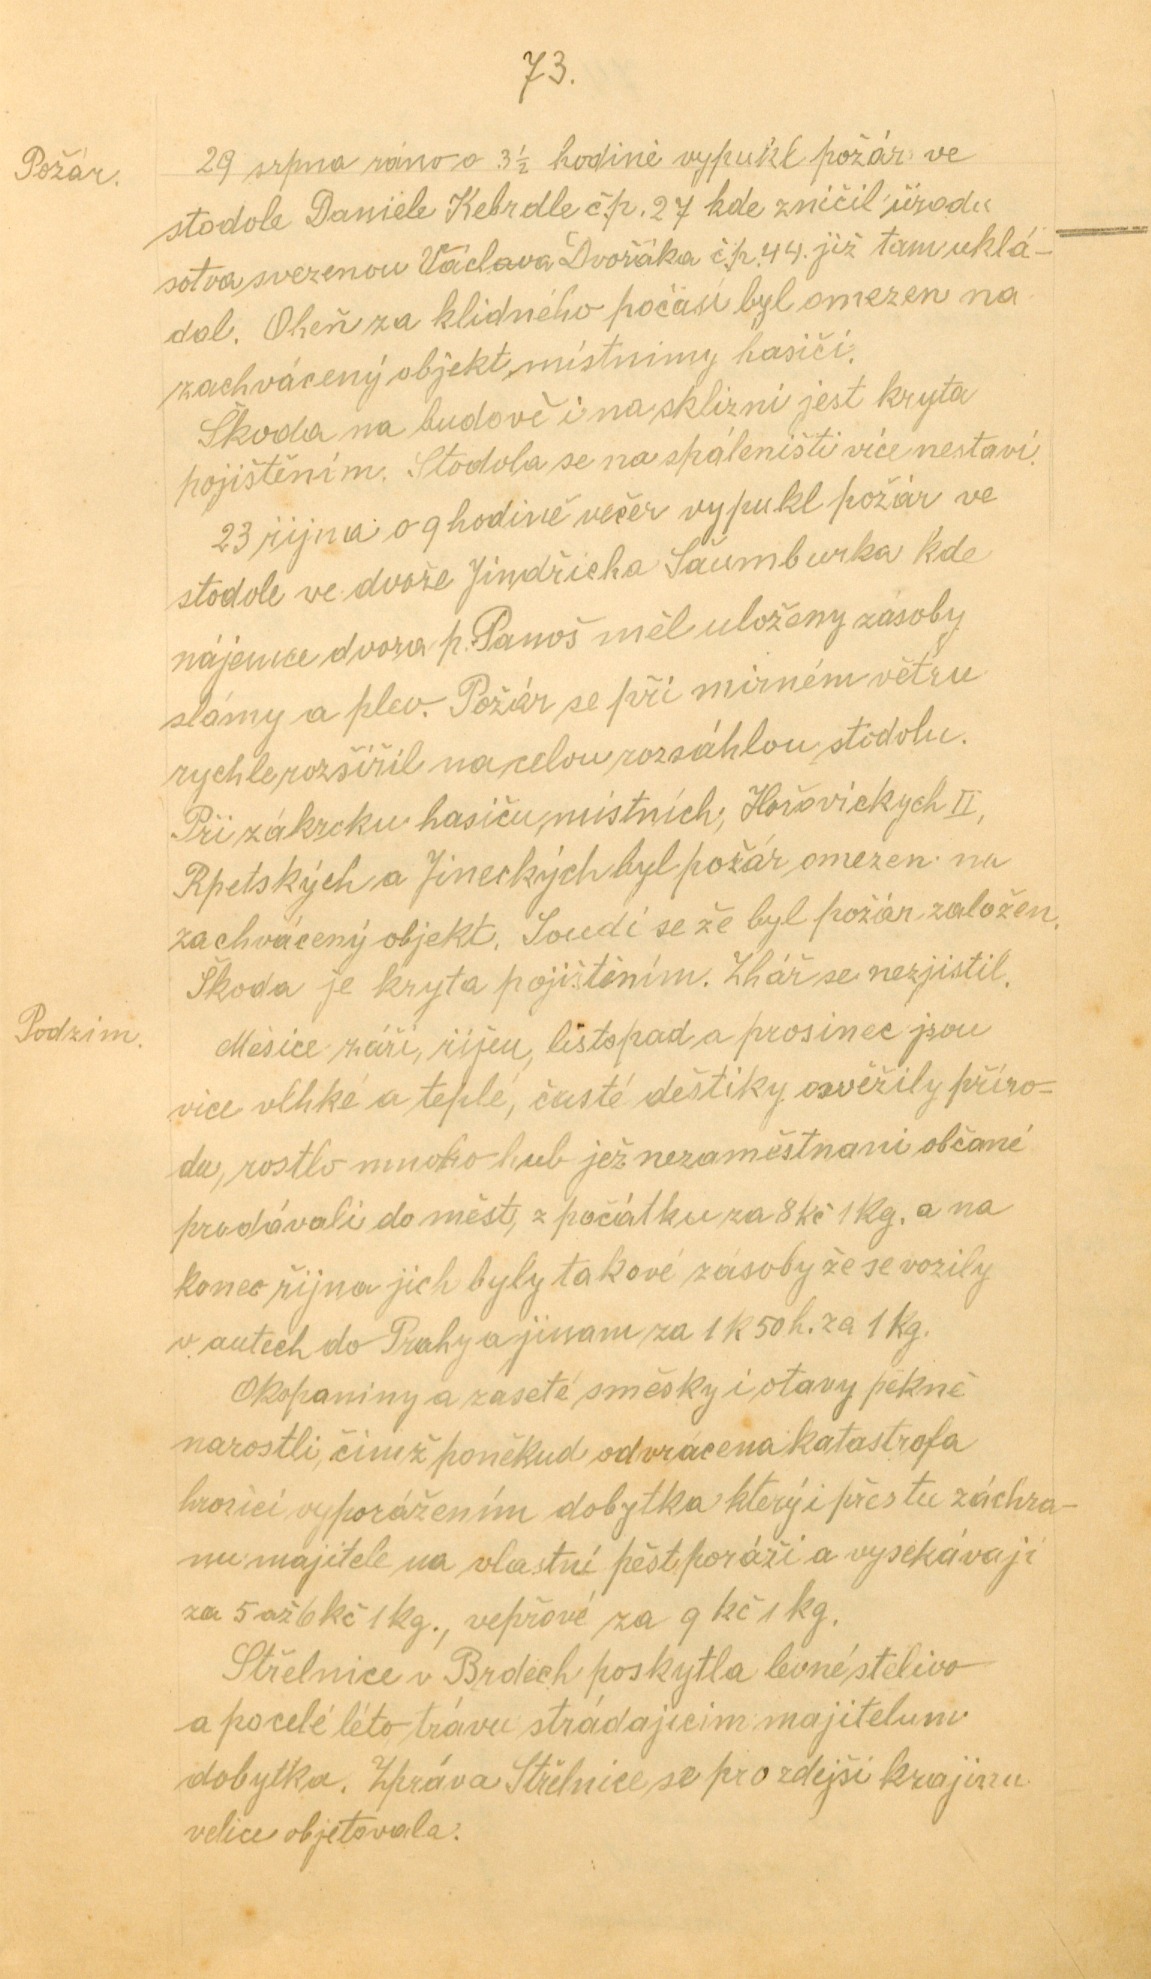 73.
Požár.
29 srpna ráno o 3½ hodině vypukl požár ve
stodole Daniele Kebrdle č.p. 27 kde zničil úrodu
sotva svezenou Václava Dvořáka č.p. 44. již tam uklá-
dal. Oheň za klidného počasí byl omezen na
zachvácený objekt, místnimy hasiči.
Škoda na budově i na sklizni jest kryta
pojištěním. Stodola se na spáleništi více nestaví.
23 října o 9 hodině večer vypukl požár ve
stodole ve dvoře Jindřicha Šaumburka kde
nájemce dvora p. Panoš měl uloženy zásoby
slámy a plev. Požár se při mirném větru
rychle rozšířil na celou rozsáhlou stodolu.
Při zákrcku hasiču místních, Hořovických II,
Rpetských a Jineckých byl požár omezen na
zachvácený objekt. Soudí se že byl požár založen.
Škoda je kryta pojištěním. Zhář se nezjistil.
Podzim.
Měsice záři, říjen, listopad a prosinec jsou
vice vlhké a teplé, časté deštiky osvěžily příro-
du, rostlo mnoho hub jež nezaměstnani občané
prodávali do měst, z počátku za 8 kč 1 kg. a na
konec řijna jich byly takové zásoby že se vozily
v autech do Prahy a jinam za 1 K 50 h. za 1 kg.
Okopaniny a zaseté směsky i otavy pěkně
narostli, čimž poněkud odvrácena katastrofa
hrozici vyporážením dobytka který i přes tu záchra-
nu majitele na vlastní pěst poráži a vysekávají
za 5 až 6 kč 1 kg., vepřové za 9 kč 1 kg.
Střelnice v Brdech poskytla levné stelivo
a po celé léto trávu strádajicim majitelum
dobytka. Zpráva Střelnice se pro zdejši krajinu
velice objetovala.